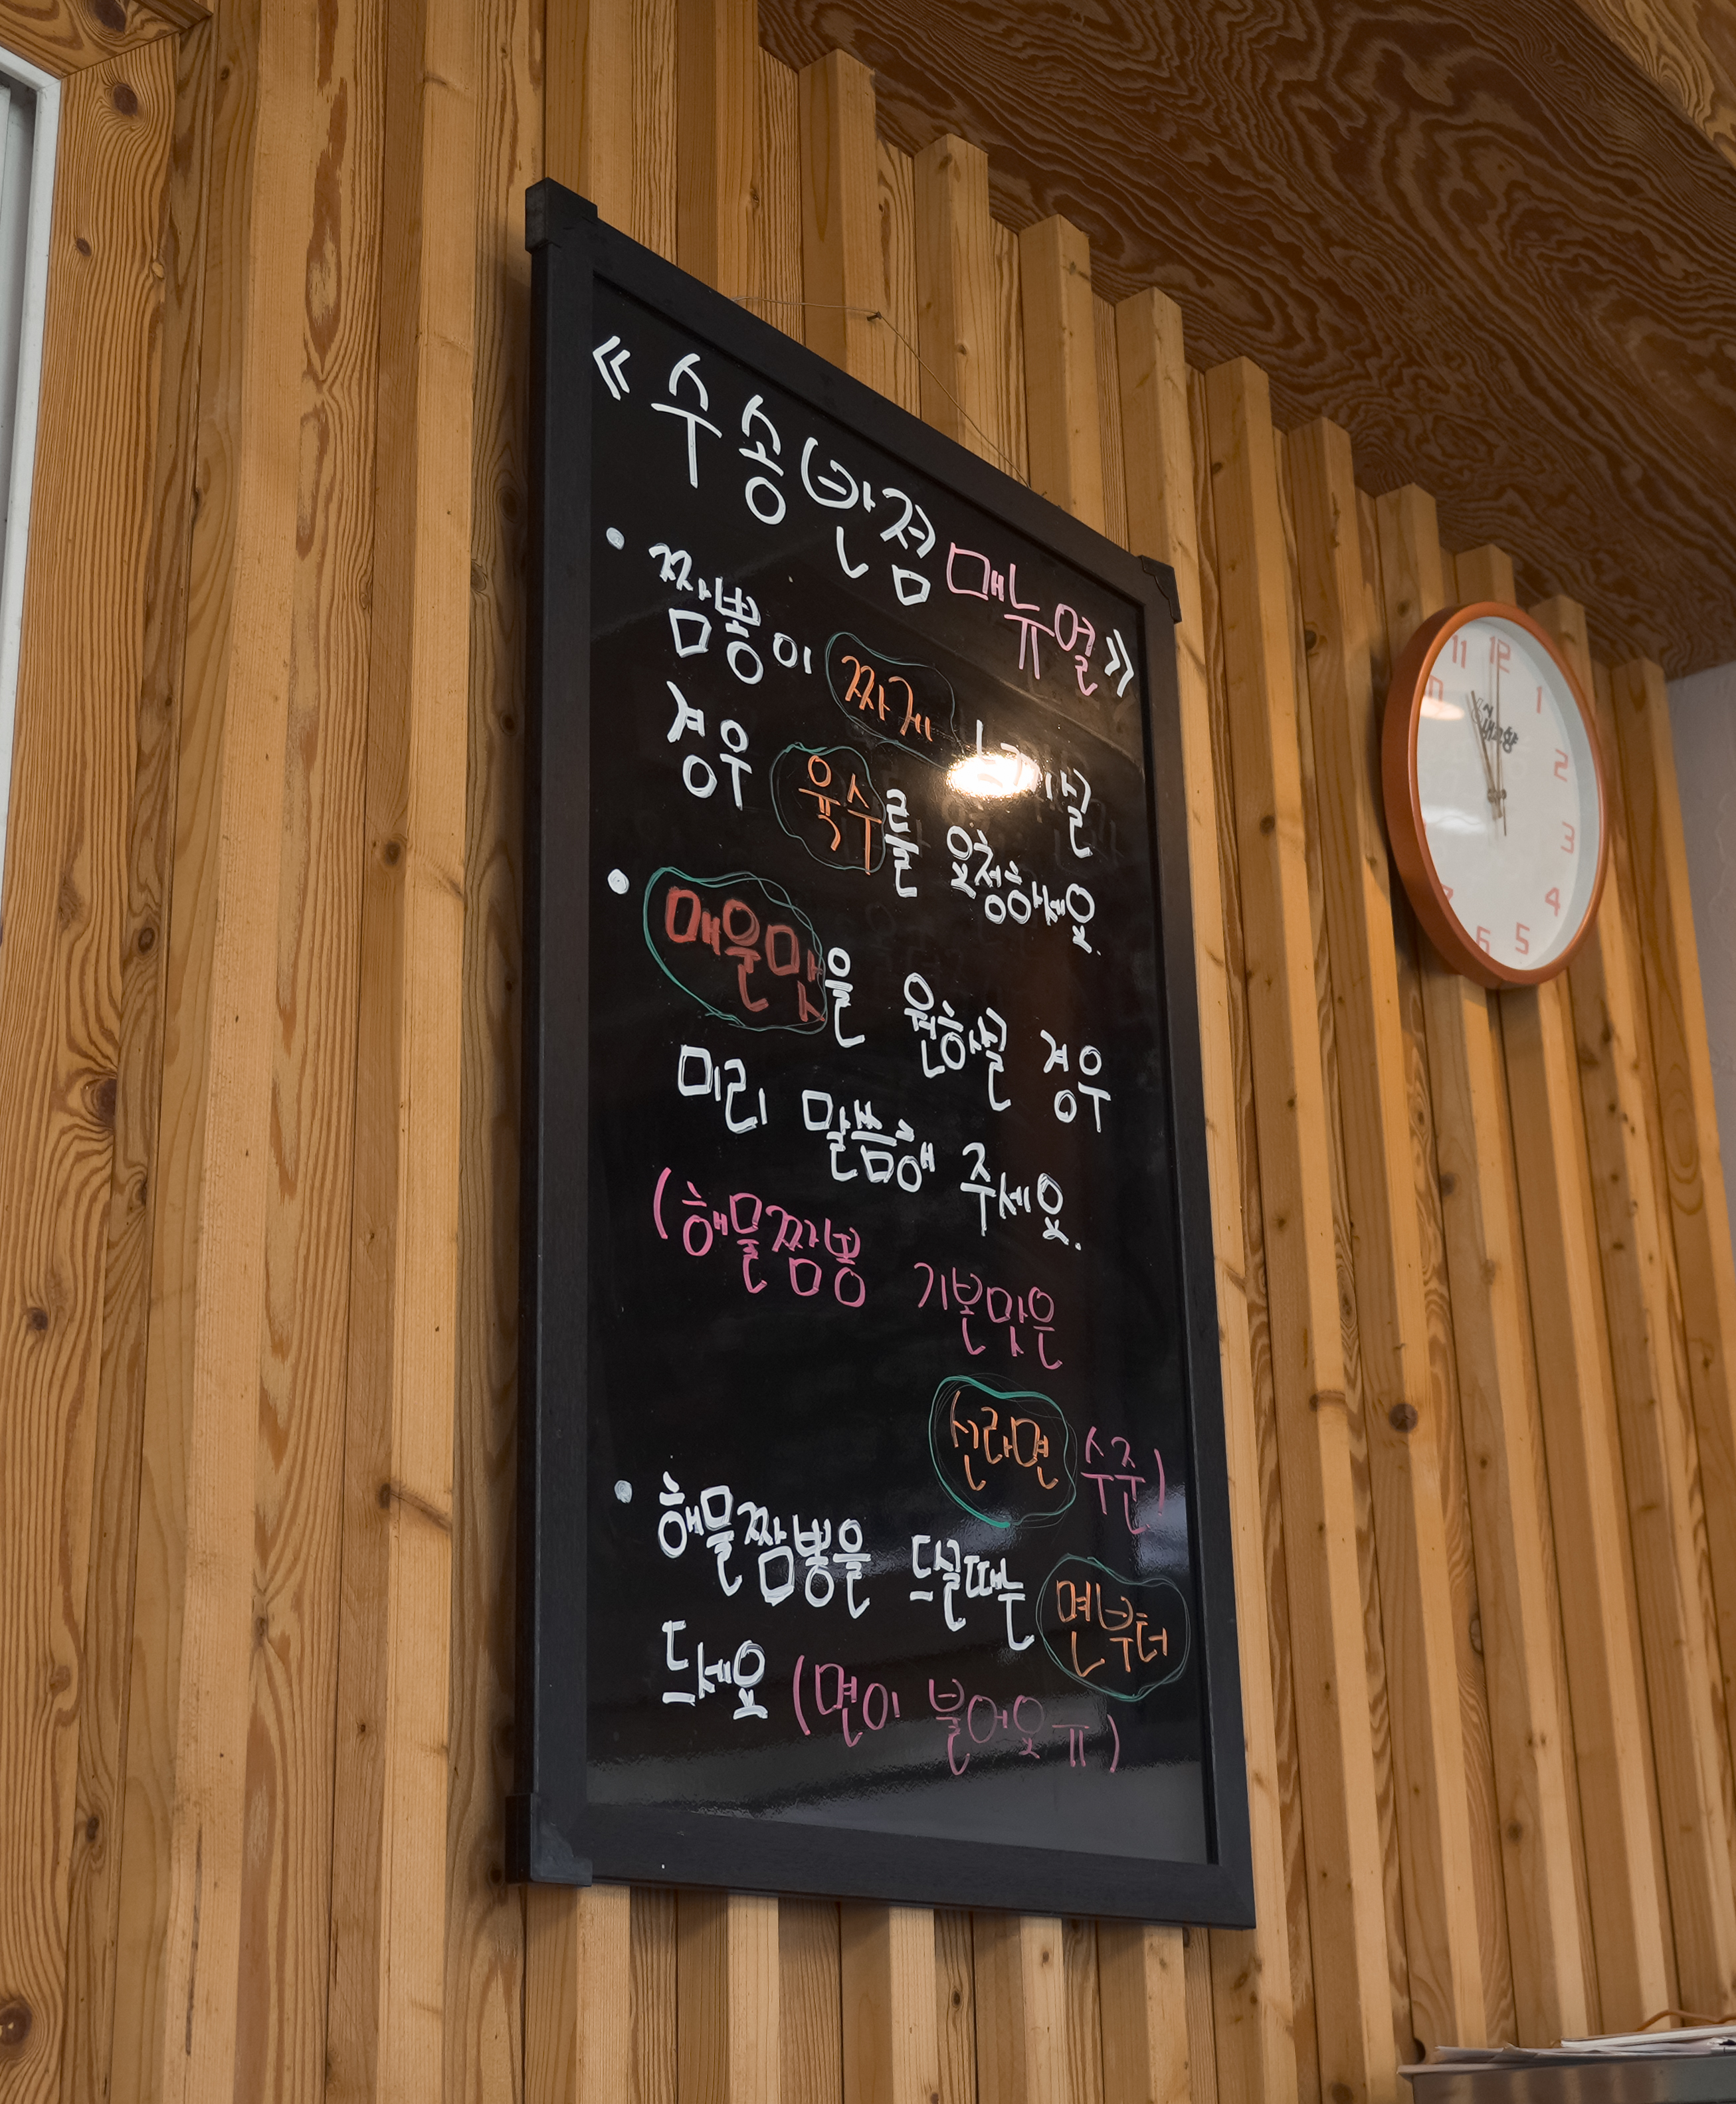 《수송반점 매뉴얼》
• 짬뽕이 짜게
경우 육수를 요청하세요.
• 매운맛을 원하실 경우
미리 말씀해 주세요.
(해물짬뽕 기본맛은
신라면 수준)
• 해물짬뽕을 드실때는 면부터
드세요 (면이 불어요ㅠ)
11 12 1 2 3 4 5 6